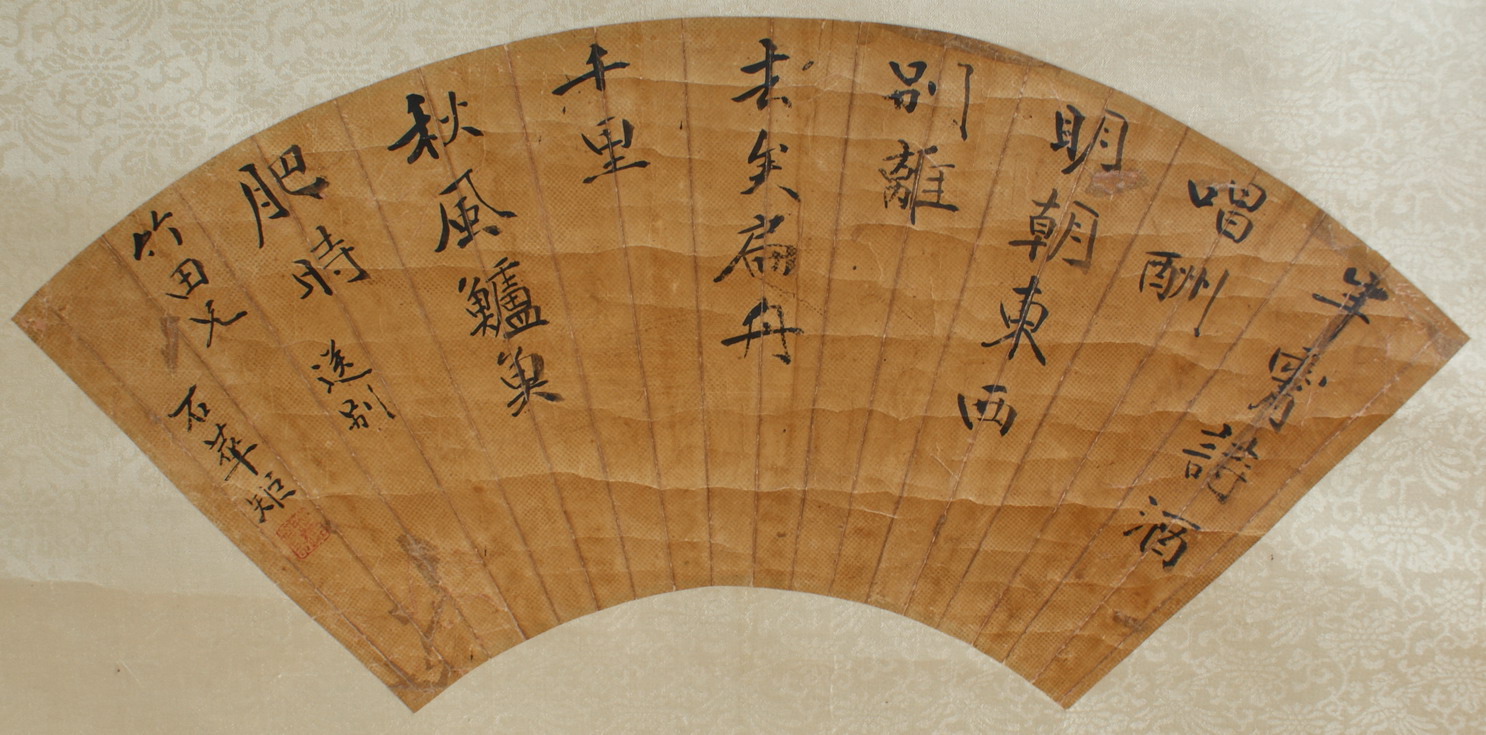 詩酒
唱酬
明朝東西
別離
去矣扁舟
千里
秋風鱸魚
肥時 送別
竹田兄
石華矩